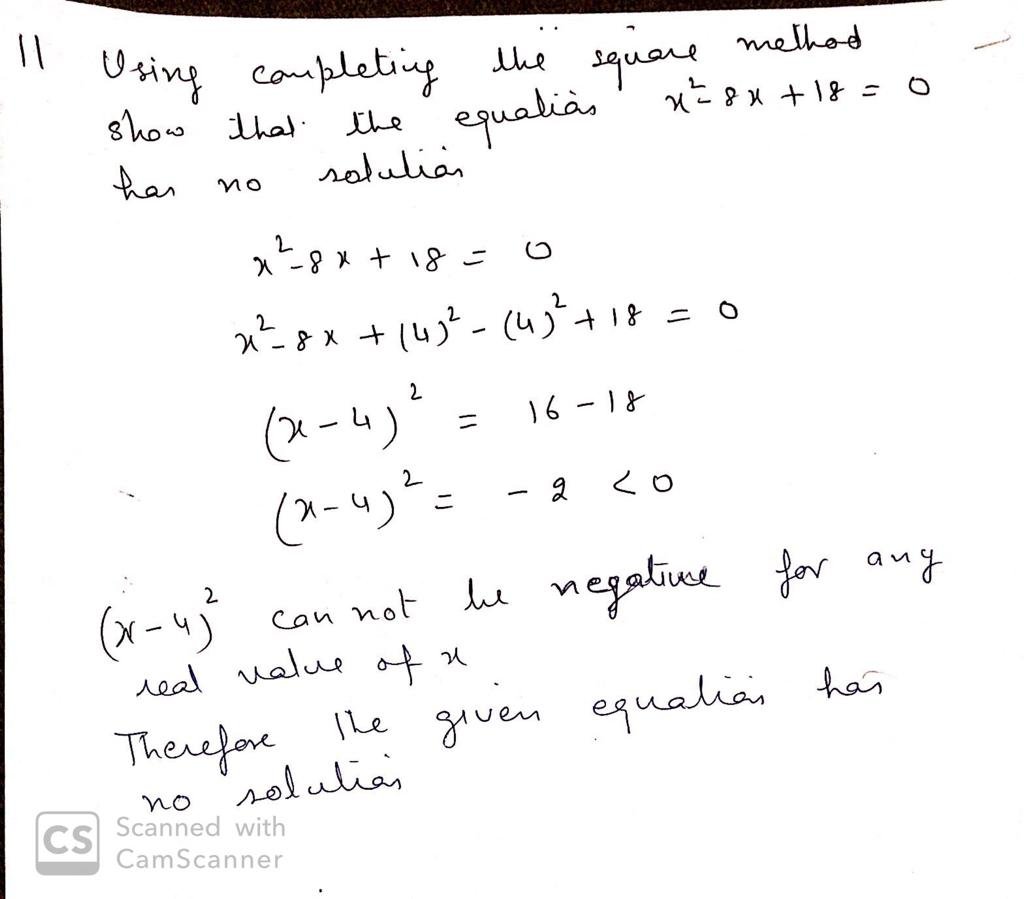 11 Using completing the square method
show that the equation x² - 8x + 18 = 0
has no solution
x² - 8x + 18 = 0
x² - 8x + (4)² - (4)² + 18 = 0
(x - 4)² = 16 - 18
(x - 4)² = - 2 < 0
(x - 4)² can not be negative for any
real value of x
Therefore the given equation has
no solution
CS Scanned with
CamScanner